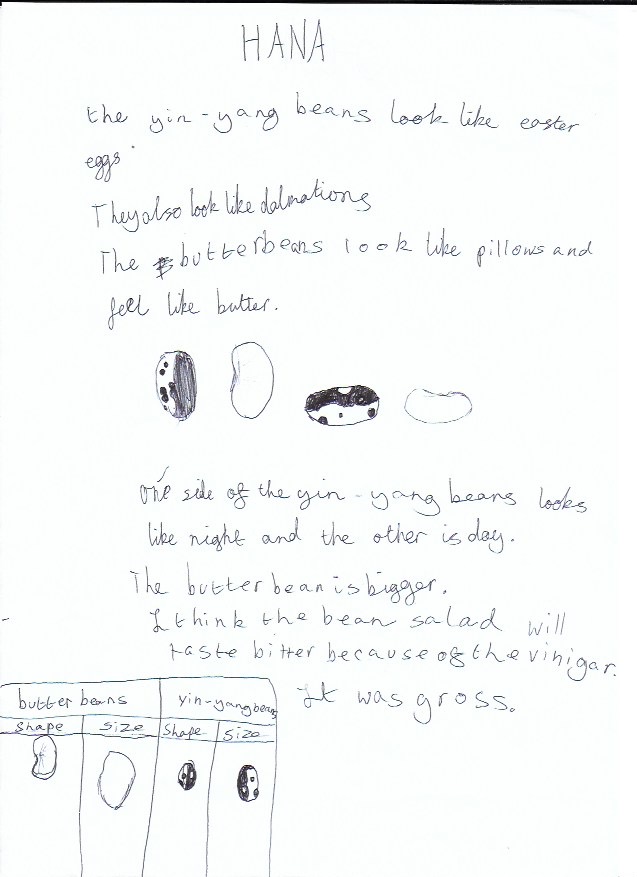 HANA
the yin-yang beans look like easter
eggs.
They also look like dalmations
The butterbeans look like pillows and
feel like butter.
one side of the yin-yang beans looks
like night and the other is day.
The butter bean is bigger.
I think the bean salad will
taste bitter because of the vinigar.
It was gross.
butter beans yin-yang beans
shape size shape size